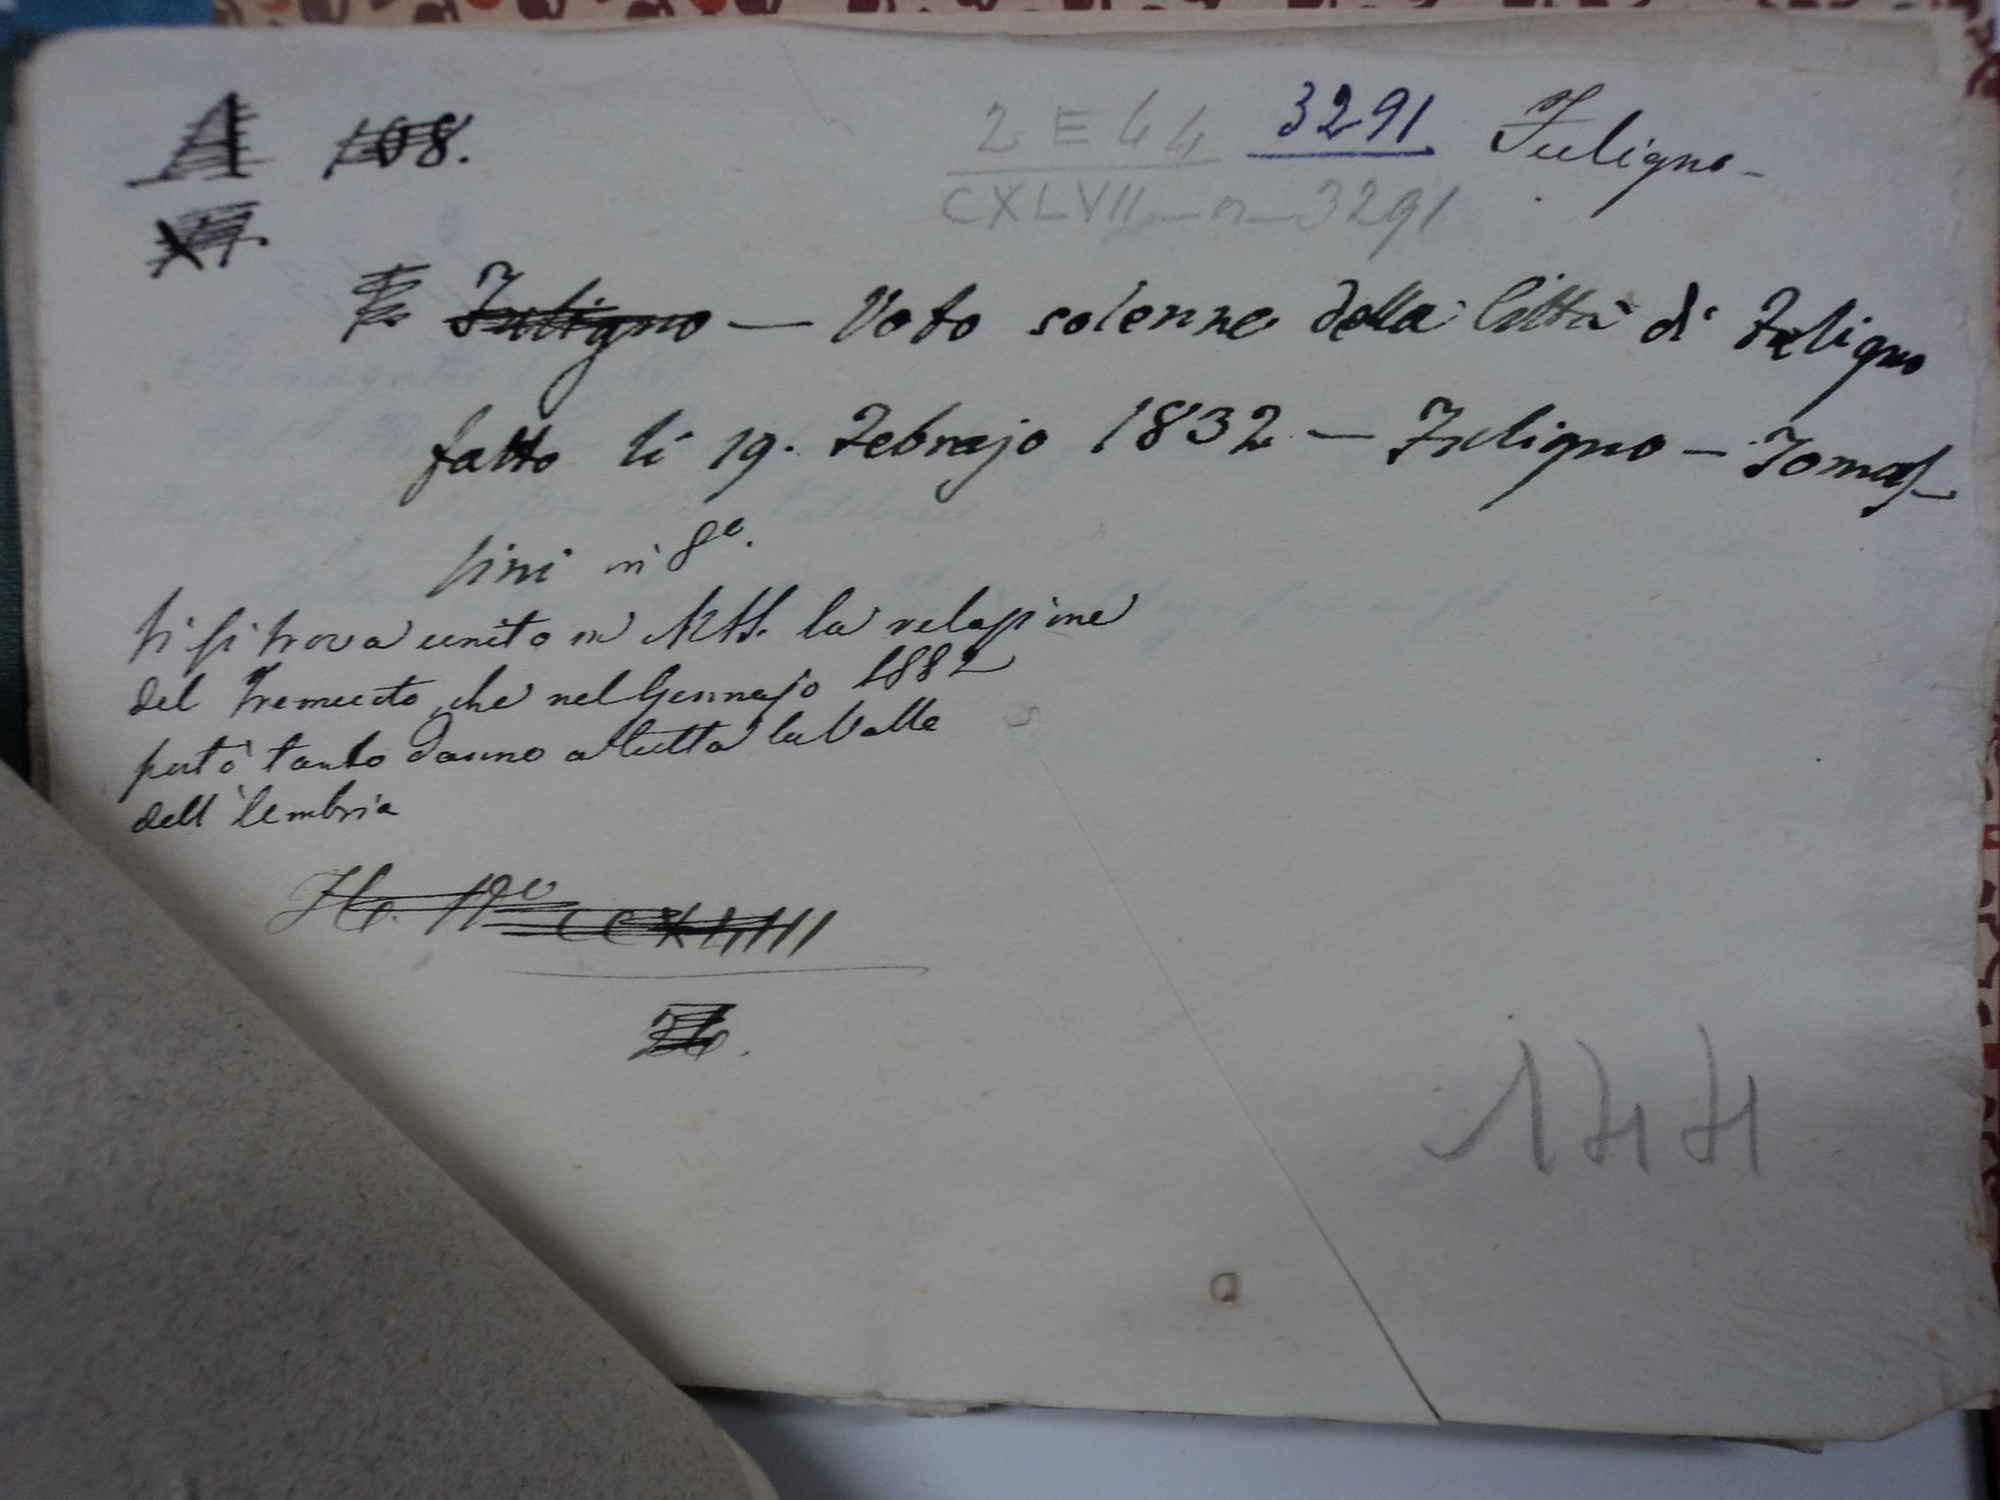 A 108.
2 E 44 3291 Fuligno-
CXLVII - n - 3291
Fuligno — Voto solenne della Città di Fuligno
fatto li 19. Febrajo 1832 — Fuligno — Tomas-
sini in 8º.
Vi si trova unito in MSS. la relazione
del Tremuoto, che nel Gennajo 1832
portò tanto danno a tutta la Valle
dell'Umbria
CCXLIIII
144